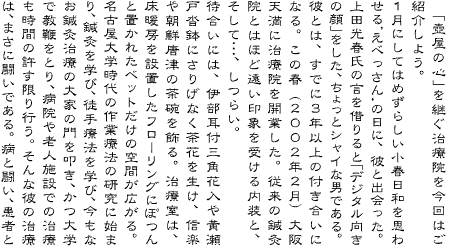 「壺屋の心」を継ぐ治療院を今回はご
紹介しよう。
1月にしてはめずらしい小春日和を思わ
せる,えべっさん,の日に、彼と出会った。
上田光春氏の言を借りると「デジタル向き
の顔」をした、ちょっとシャイな男である。
彼とは、すでに3年以上の付き合いに
なる。この春(2002年2月)大阪
天満に治療院を開業した。従来の鍼灸
院とはほど遠い印象を受ける内装と、
そして…、しつらい。
待合いには、伊部耳付三角花入や黄瀬
戸沓鉢にさりげなく茶花を生け、信楽
や朝鮮唐津の茶碗を飾る。治療室は、
床暖房を設置したフローリングにぽつん
と置かれたベットだけの空間が広がる。
名古屋大学時代の作業療法の研究に始ま
り、鍼灸を学び、徒手療法を学び、今もな
お鍼灸治療の大家の門を叩き、かつ大学
で教鞭をとり、病院や老人施設での治療
も時間の許す限り行う。そんな彼の治療
は、まさに闘いである。病と闘い、患者と